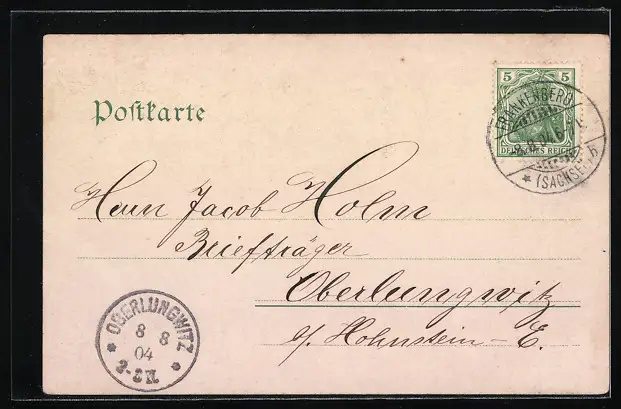 5 5
DEUTSCHES REICH
FRANKENBERG
* (SACHSEN) h
Postkarte
Herrn Jacob Holm
Briefträger
Oberlungwitz
b/. Hohnstein-E.
* OBERLUNGWITZ *
8 8
04
2-3N.